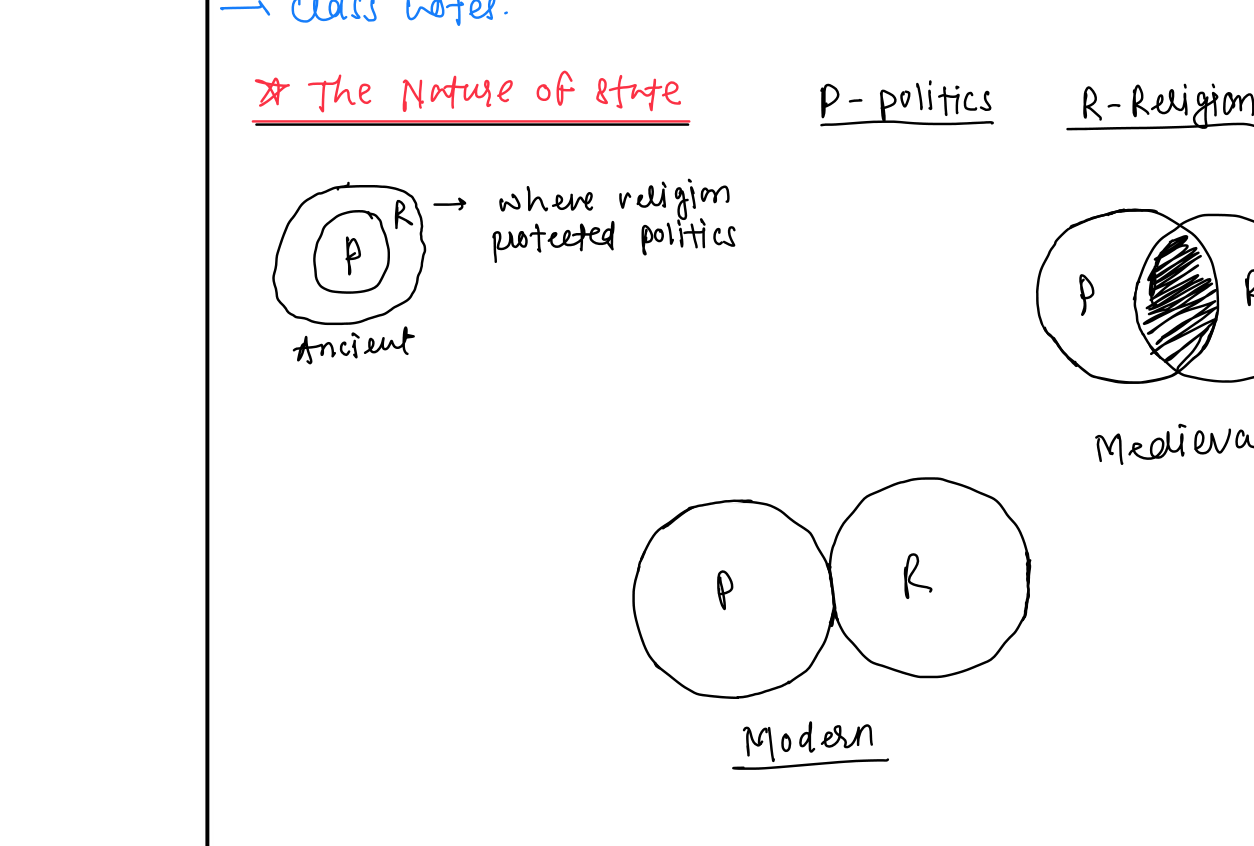 → Class notes.
☆ The Nature of State
P - politics
R - Religion
R → where religion
protected politics
P
Ancient
P
R
Medieva
P
R
Modern